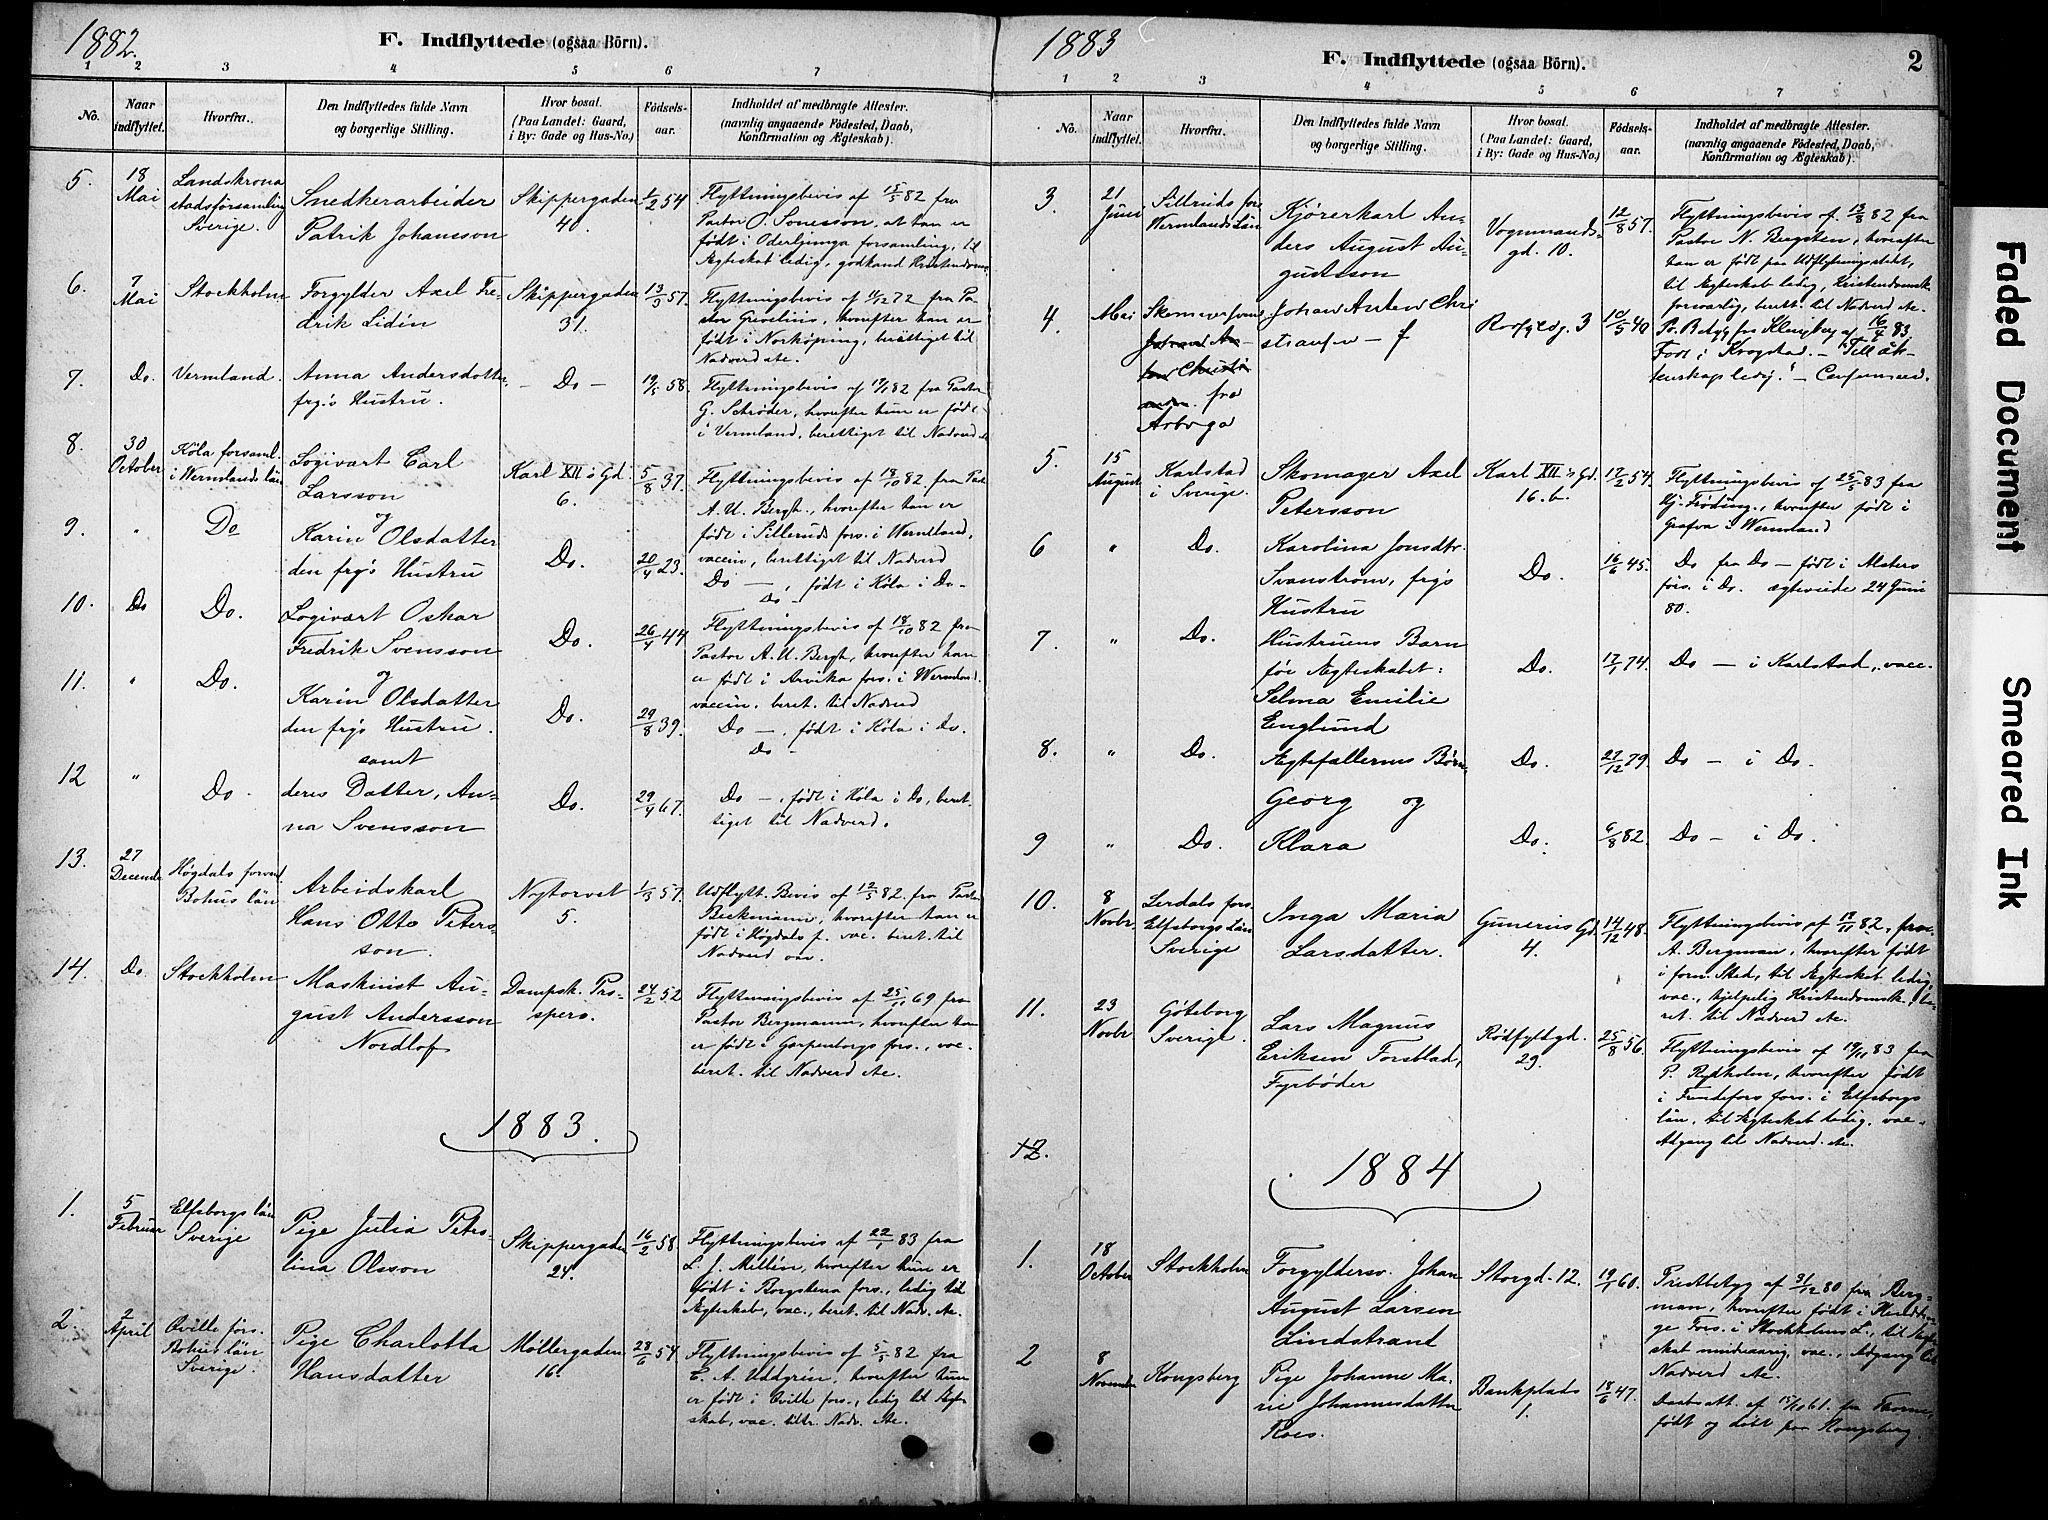 1882.
F. Indflyttede (ogsaa Börn).
1 2 3 4 5 6 7
No.
Naar indflyttet.
Hvorfra.
Den Indflyttedes fulde Navn og borgerlige Stilling.
Hvor bosat. (Paa Landet: Gaard, i By: Gade og Hus-No.)
Fødsels-aar.
Indholdet af medbragte Attester. (navnlig angaaende Födested, Daab, Konfirmation og Ægteskab).
5.
18 Mai
Landskrona
stadsförsamling
Sverige.
Snedkerarbeider
Patrik Johansson
Skippergaden
40.
1/2 54
Flyttningsbevis af 15/5 82 fra
Pastor O. Sonesson, at han er
født i Oderljunga forsamling, til
Ægteskab ledig, godkand Kristendoms
6.
7 Mai
Stockholm
Forgylder Axel Fre-
drik Lidén
Skippergaden
31.
13/9 57
Flyttningsbevis af 11/12 72 fra Pa-
stor Grevelius, hvorefter han er
født i Norköping, berättiget til
Nadverd etc.
7.
Do.
Vermland.
Anna Andersdotter
frg's Hustru.
- Do -
19/5 58.
Flyttningsbevis af 19/1 82 fra Pastor
G. Schrøder, hvorefter hun er født
i Vermland, berettiget til Nadverd
8.
30 October
Köla forsaml.
i Wermlands län
Logivært Carl
Larsson
og
Karl XII's Gd.
6.
5/8 37.
Flyttningsbevis af 18/10 82 fra Past
A. U. Bergh, hvorefter han er
født i Silleruds fors. i Wermland,
vaccin, berettiget til Nadverd
9.
"
Do
Karin Olsdatter
den frg's Hustru
Do.
20/4 23.
Do —, født i Köla i Do-
Do -
10.
Do
Do.
Logivært Oskar
Fredrik Svensson
og
Do.
26/4 44
Flyttningsbevis af 18/10 82 fra
Pastor A. U. Bergh, hvorefter han
er født i Arvika fors. i Wermland.
vaccin, beret. til Nadverd
11.
"
Do.
Karin Olsdatter
den frg's Hustru.
samt
Do.
29/8 39.
Do —, født i Köla i Do.
Do -
12
"
Do.
deres Datter, An-
na Svensson
Do.
29/4 67.
Do —, født i Köla i Do, beret-
tiget til Nadverd.
13.
27 Decemb
Høgdals forsml
Bohus län
Arbeidskarl
Hans Otto Peters-
son.
Nytorvet
5.
1/3 57.
Udflytt. Bevis af 12/5 82. fra Pastor
Beckmann, hvorefter han er
født i Høgdals f. vac. beret. til
Nadverd osv.
14.
Do.
Stockholm
Maskinist Au-
gust Andersson
Nordlöf
Dampsk. Pro-
spero.
24/2 52
Flyttningsbevis af 25/11 69 fra
Pastor Bergmann, hvorefter han
er født i Garpenborgs fors., vac.
beret. til Nadverd etc.
1883.
1.
5 Februar
Elfsborgs län
Sverige
Pige Julia Peters-
lina Olsson
Skippergaden
24.
16/2 58.
Flyttningsbevis af 22/1 83 fra
L. J. Millén, hvorefter hun er
født i Borgstena fors., ledig til
Ægteskab, vac., beret. til Nadv. etc.
2.
2 April
Qville førs.
Bohus län
Sverige.
Pige Charlotta
Hansdatter
Møllergaden
16.
28/6 54
Flyttningsbevis af 5/5 82 fra
C. A. Uddgrén, hvorefter hun
er født i Qville fors., ledig til Ægte-
skab, vac. tiltr. Nadv. etc.
1883
F. Indflyttede (ogsaa Börn).
2
1 2 3 4 5 6 7
No.
Naar indflyttet.
Hvorfra.
Den Indflyttedes fulde Navn og borgerlige Stilling.
Hvor bosat. (Paa Landet: Gaard, i By: Gade og Hus-No.)
Fødsels-aar.
Indholdet af medbragte Attester. (navnlig angaaende Fødested, Daab, Konfirmation og Ægteskab).
3.
21 Juni
Silleruds fors
Wermlands Län
Kjørerkarl An-
ders August Au-
gustsson
Vognmands-
gd. 10.
12/8 57.
Flyttningsbevis af 13/8 82 fra
Pastor N. Bergsten, hvorefter
han er født paa Udflytningsstedet,
til Ægteskab ledig, Kristendomsk.
forsvarlig, beret. til Nadverd etc.
4.
Mai
fra
Arboga
Johan Anton Chri
stransen - f
Rosfyldg. 3
10/5 40
Pr. Betyg fra Klingberg af 16/4 83
Født i Krogstad. - "Till äk-
tenskap ledig." -
5.
15 August
Karlstad
i Sverige.
Skomager Axel
Petersson
Karl XII's Gd.
16. b.
17/2 54.
Flyttningsbevis af 25/5 83 fra
Hj. Frøding, hvorefter født i
Grafva i Wermland
6
"
Do.
Karolina Jonsdtr.
Svanström, frg's
Hustru
Do.
16/6 45.
Do fra Do - født i Alsters
fors. i Do. ægteviede 24 Juni
80.
7.
"
Do.
Hustruens Barn
før Ægteskabet:
Selma Emilie
Englund
Do.
17/1 74.
Do - i Karlstad, vacc.
8.
"
Do.
Ægtefællernes Børn
Georg og
Do.
27/12 79.
Do - i Do.
9
"
Do.
Klara
Do.
6/8 82.
Do - i Do.
10.
8 Novbr
Lerdals fors.
Elfsborgs Län
Sverige
Inga Maria
Larsdatter.
Gunerius Gd.
4.
14/12 48.
Flyttningsbevis af 18/11 82, fra
A. Bergman, hvorefter født
i forn. Sted, til Ægteskab ledig,
vac., hjelpelig Kristendomsk., be-
ret. til Nadverd etc.
11.
23 Novbr
Göteborg
Sverige.
Lars Magnus
Eriksen Forsblad,
Fyrbøder
Rødfyldgd.
29.
25/8 56.
Flyttningsbevis af 19/11 83 fra
P. Rydholm, hvorefter født
i Fundefors fors. i Elfsborgs
län, til Ægteskab ledig, vac.
Adgang til Nadverd. etc.
12.
1884
1.
18 October
Stockholm
Forgyldersv. Johan
August Larsen
Lindstrand
Storgd. 12.
19/1 60.
Prestbetyg af 31/12 80 fra Berg-
man, hvorefter født i
ge Fors. i Stockholms L., til Ægte-
skab mindreaarig, vac., Adgang til
Nadverd etc.
2
8 Novembr
Kongsberg
Pige Johanne Ma-
rie Johannesdatter
Roes.
Bankplads
1.
18/6 47.
Daabsatt. af 15/10 61. fra
født og døbt paa Kongsberg.
Faded Document
Smeared Ink